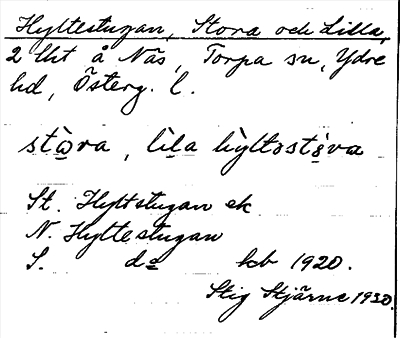 Hyltestugan, Stora och Lilla,
2 lht å Näs, Torpa sn, Ydre
hd, Österg. l.
stò̲ra, lìl̲a hỳltostś̲va
St. Hyltstugan ek
N. Hyltestugan
S. do kb 1920.
Stig Stjärne 1930.